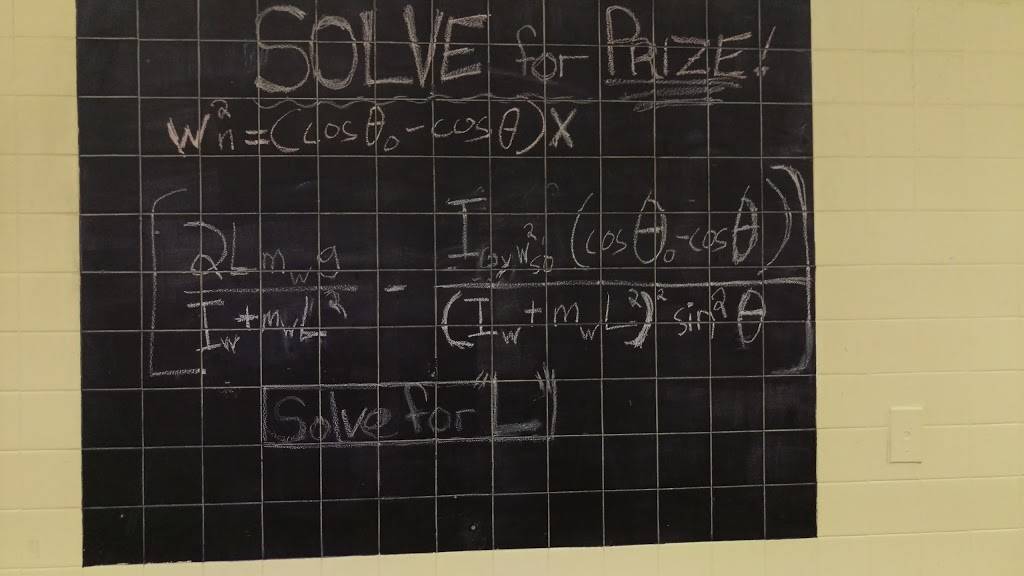 SOLVE for PRIZE!
w²n = (cosθ₀ - cosθ) x
[ 2Lm_w g / I_w + m_w L² - I w²_s0 (cosθ₀ - cosθ) / (I_w + m_w L²)² sin²θ ]
Solve for "L"